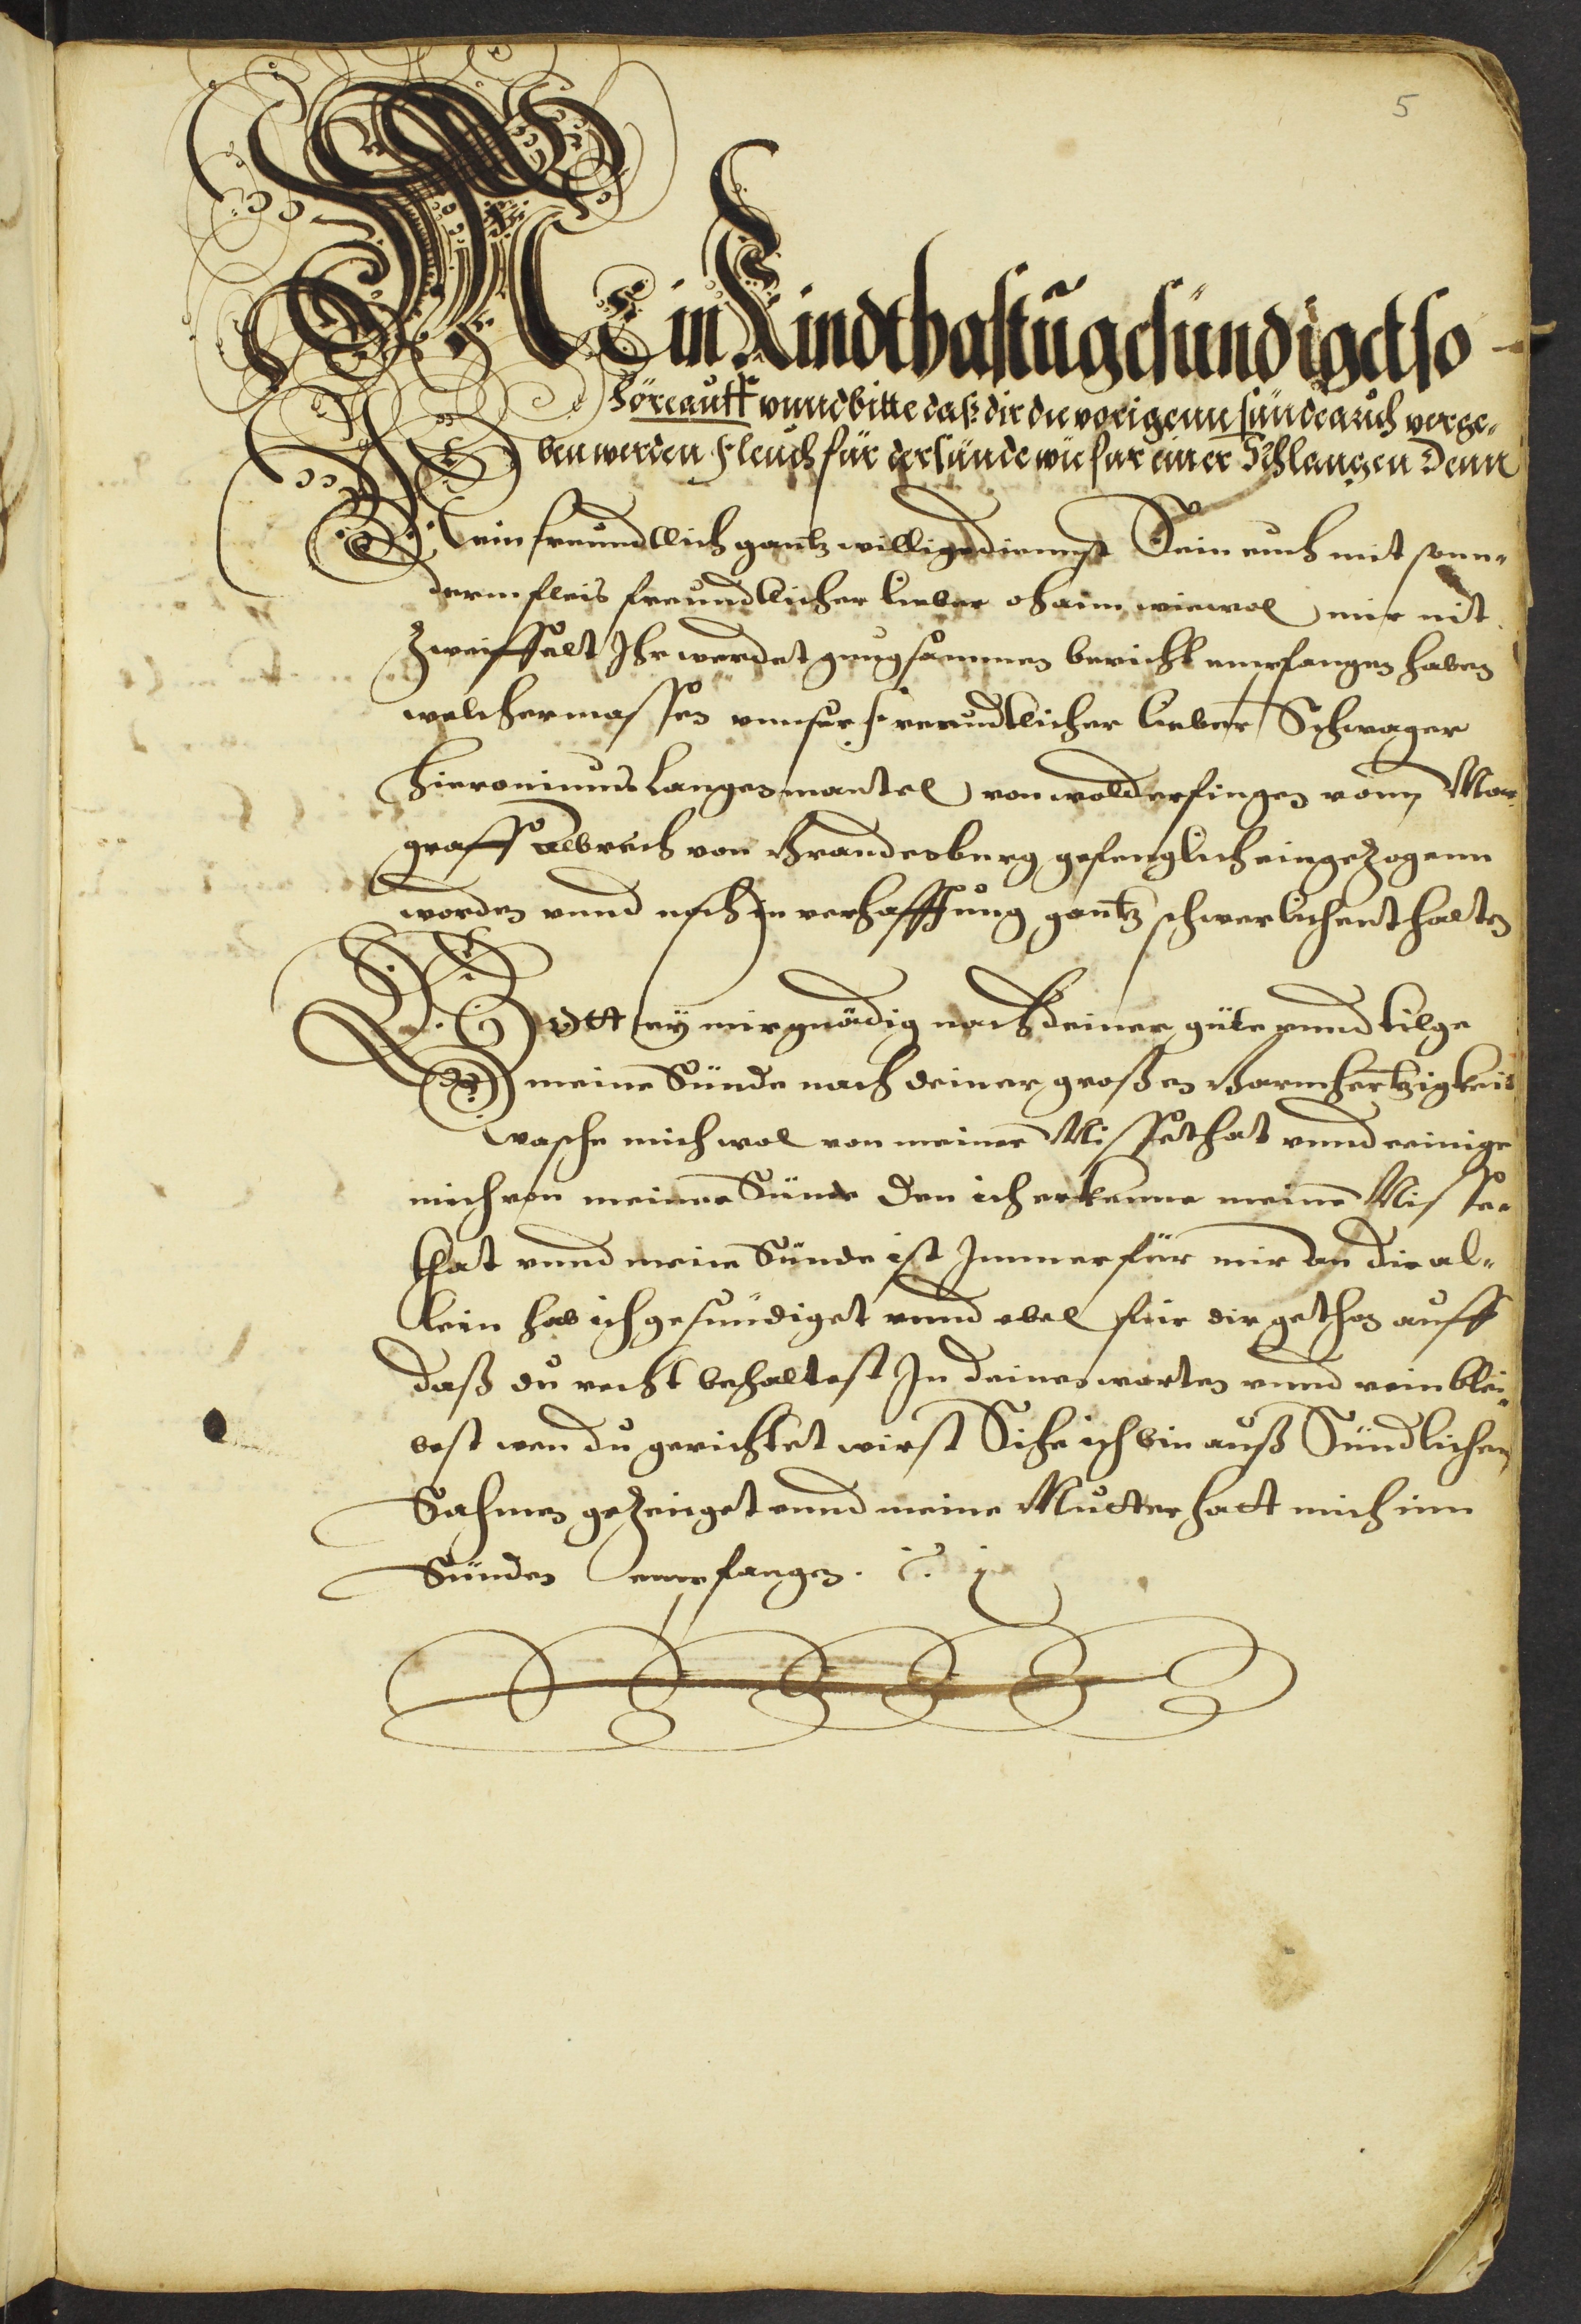 5
MEin Kindt hastu gesündiget so
Höre auff vnnd bitte daß dir die vorigenn sünde auch verge„
ben werden Fleuch für der sünde wie für einer Schlangen Denn
Mein freundtlich gantz willige diennst Sein euch mit sonn„
derm fleis freundtlicher lieber ohaim wiewol mir nit
Zweiffelt Ihr werdet gnugsammen bericht empfangen haben
welchermassen vnnser freundtlicher lieber Schwager
Hieronimus Langenmantel von wolderfingen vonn Mar
graff Albrech von Brandenburg gefenglich eingezogenn
worden vnnd noch in verhafftung gantz schwerlich enthalten
Gott sey mir gnädig nach deiner güte vnnd tilge
meine Sünde nach deiner großen Barmhertzigkeit
wasche mich wol von meiner Missethat vnnd reinige
mich von meiner Sünde den ich erkenne meine Misse„
that vnnd meine Sünde ist Immer für mir an dir al„
lein hab ich gesündiget vnnd vbel für dir gethon auff
daß du recht behaltest In deinen worten vnnd rein blei„
best wen du gerichtet wirst Sihe ich bin auß Sündlichen
Sahmen gezeuget vnnd meine Mutter hatt mich inn
Sünden empfangen.